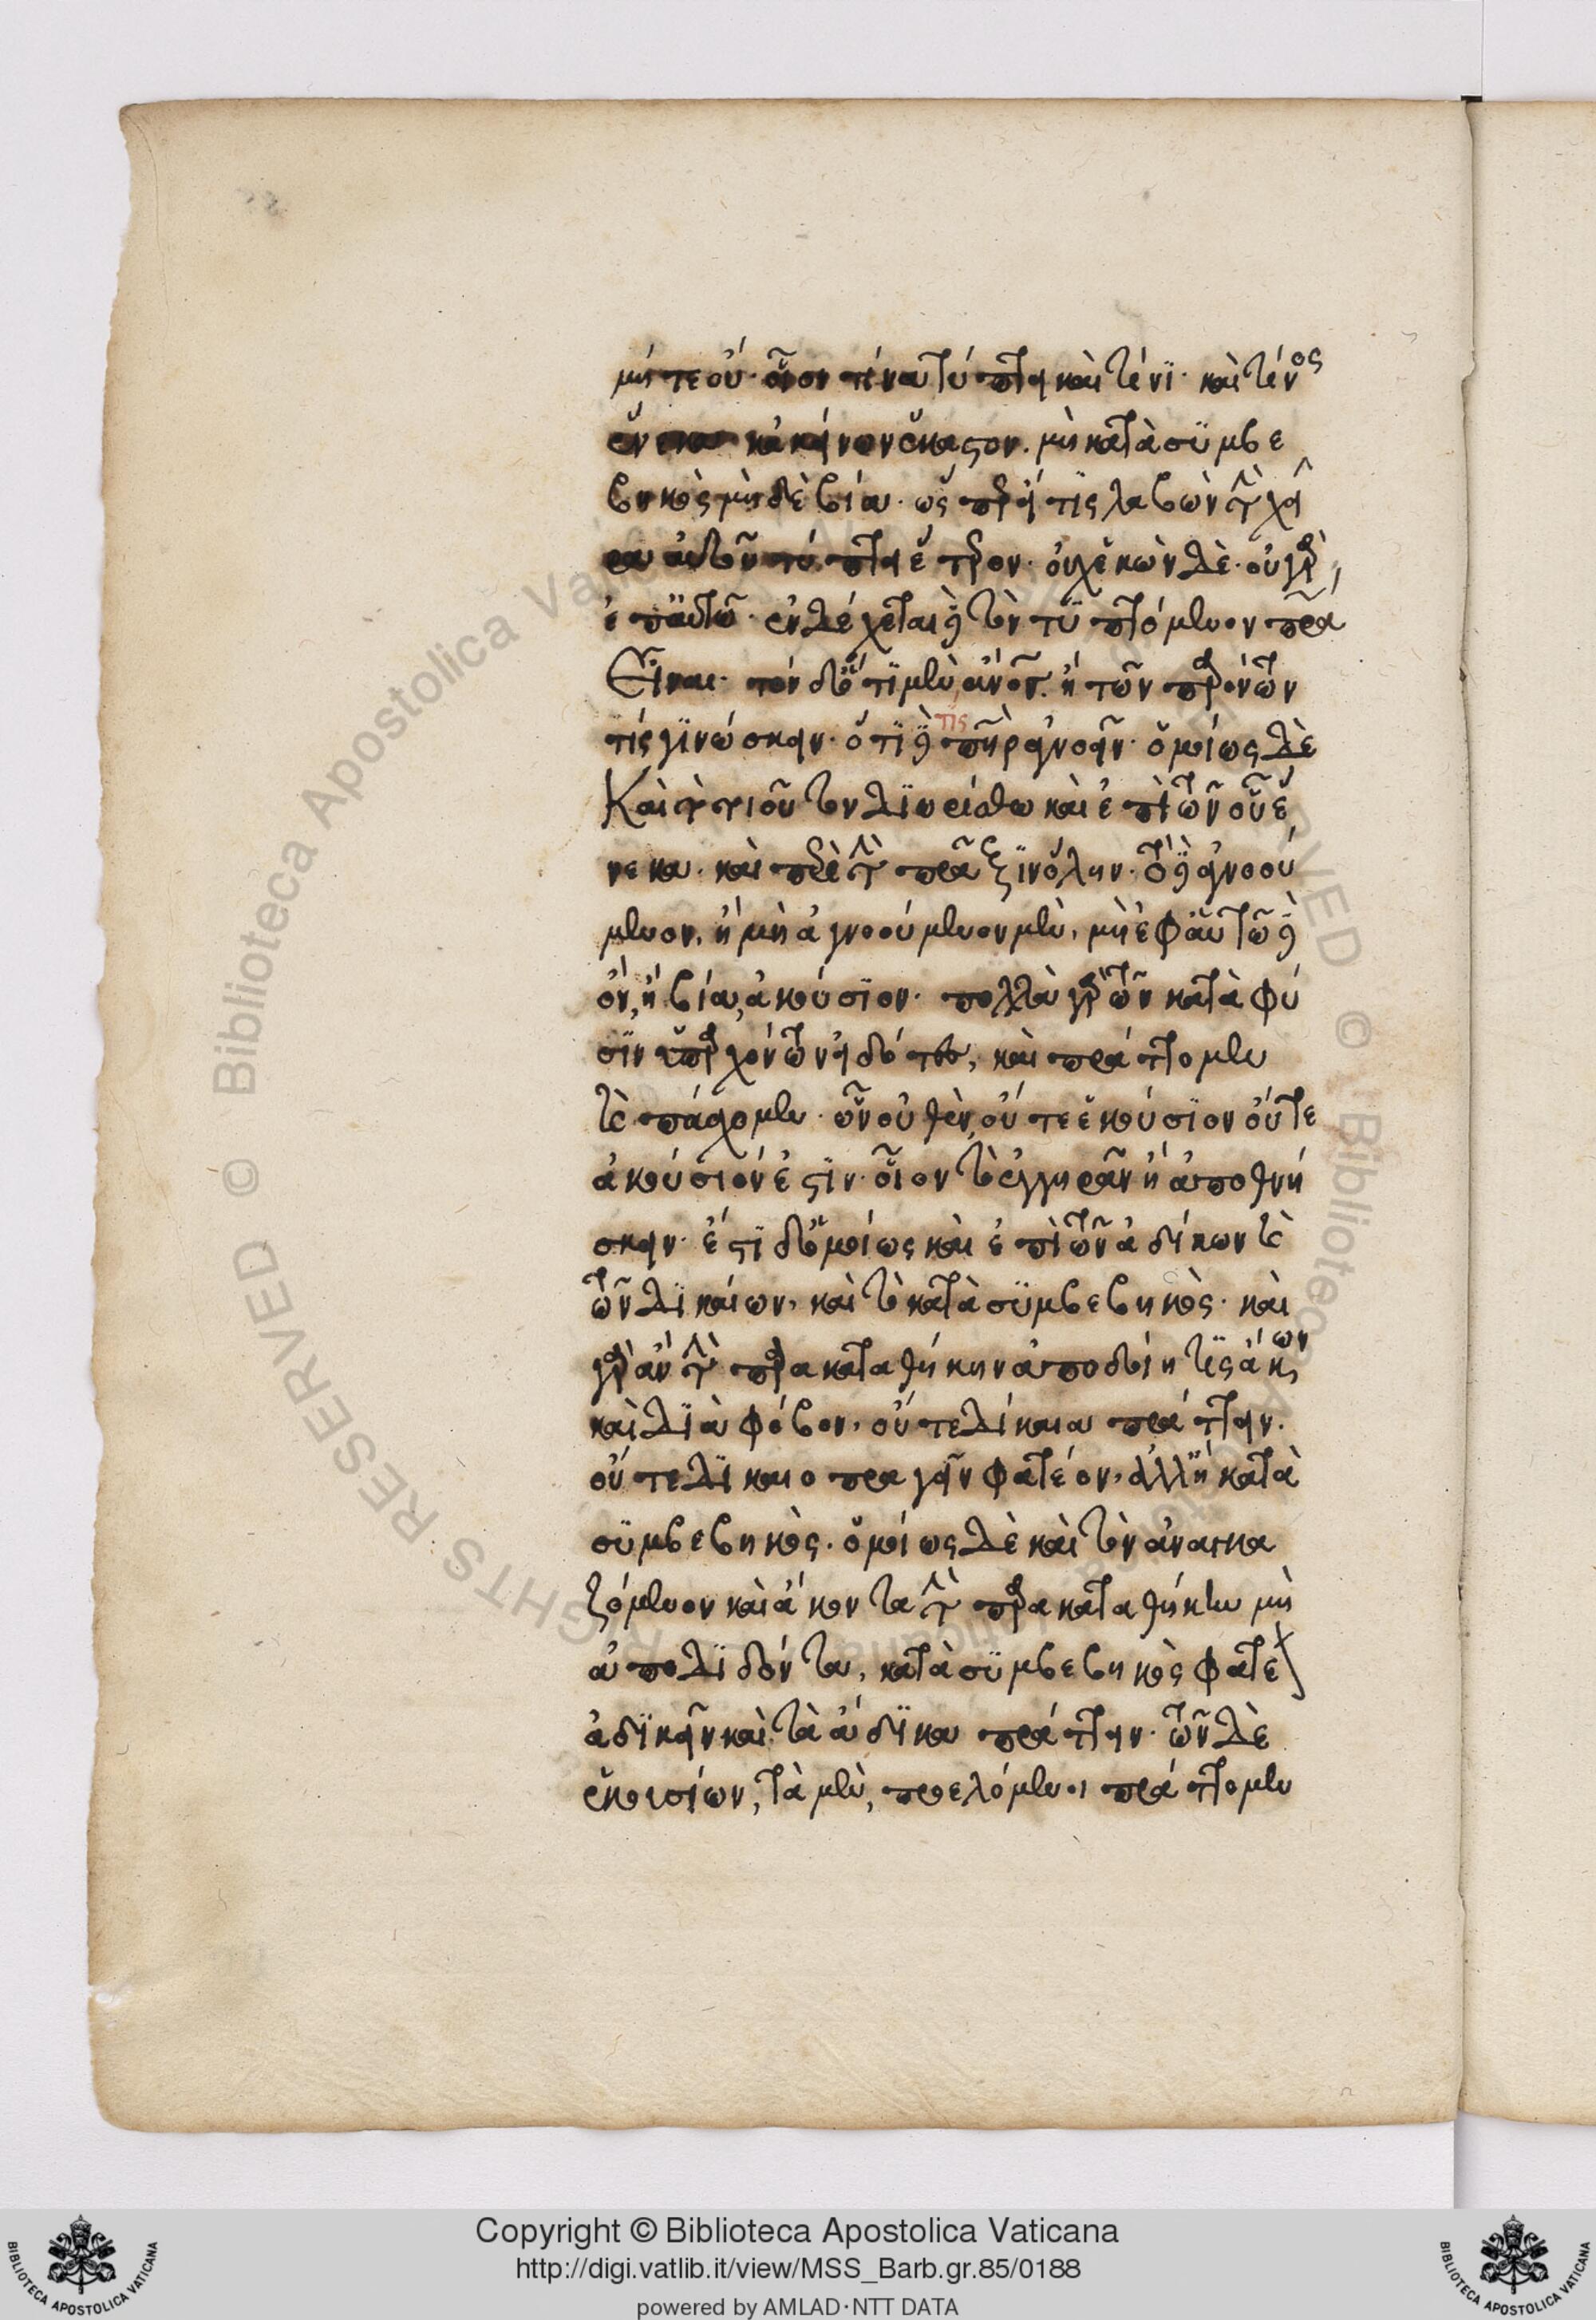 μήτε οὗ· οἷον τίνα τύπτει καὶ τίνι· καὶ τίνος
ἕνεκα κἀκείνων ἕκαστον. μὴ κατὰ συμβε
βηκὸς μηδὲ βίᾳ· ὥσπερ εἴ τις λαβὼν τὴν χεῖ
ρα αὐτοῦ τύπτει ἕτερον· οὐχ ἑκὼν δέ· οὐ γὰρ
ἐπ' αὐτῷ· ἐνδέχεται δὲ τὸν τυπτόμενον πρα
εἶναι· τὸν δ' ὅτι μὲν ἄνος. ἢ τῶν παρόντων
τίς γινώσκειν· ὅτι δὲ πὴρ ἀγνοεῖν· ὁμοίως δὲ
τις
Καὶ τὸ τοιοῦτον διωρίσθω καὶ ἐπὶ τῶν οὗ ἕ
νεκα· καὶ περὶ τὴν πρᾶξιν ὅλην· τὸ δὴ ἀγνοού
μενον, ἢ μὴ ἀγνοούμενον μὲν, μὴ ἐφ' αὑτῷ δὲ
ὄν, ἢ βίᾳ, ἀκούσιον· πολλὰ γὰρ τῶν κατὰ φύ
σιν ὑπαρχόντων εἰδότες, καὶ πράττομεν
καὶ πάσχομεν· ὧν οὐθὲν, οὔτε ἑκούσιον οὔτε
ἀκούσιόν ἐστιν· οἷον τὸ γηρᾶν ἢ ἀποθνή
σκειν· ἔστι δ' ὁμοίως καὶ ἐπὶ τῶν ἀδίκων καὶ
τῶν δικαίων, καὶ τὸ κατὰ συμβεβηκός· καὶ
γὰρ ἂν τὴν παρακαταθήκην ἀποδοίη τις ἄκων
καὶ διὰ φόβον, οὔτε δίκαια πράττειν.
οὔτε δικαιοπραγεῖν φατέον, ἀλλ' ἢ κατὰ
συμβεβηκός. ὁμοίως δὲ καὶ τὸν ἀναγκα
ζόμενον καὶ ἄκοντα τὴν παρακαταθήκην μὴ
ἀποδιδόντα, κατὰ συμβεβηκὸς φατέ
ἀδικεῖν καὶ τὰ ἄδικα πράττειν· τῶν δὲ
ἑκουσίων, τὰ μὲν, προελόμενοι πράττομεν
Copyright © Biblioteca Apostolica Vaticana
http://digi.vatlib.it/view/MSS_Barb.gr.85/0188
powered by AMLAD·NTT DATA